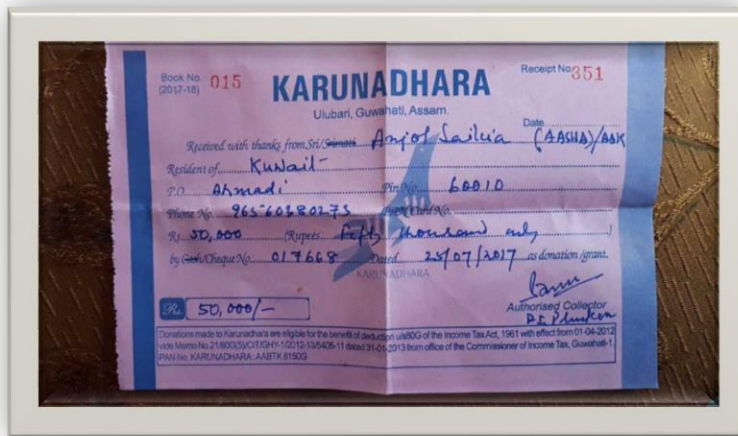 Book No. 015 KARUNADHARA Receipt No. 351
(2017-18)
Ulubari, Guwahati, Assam.
Date
Received with thanks from Sri/Srimati Anjol Saikia (AASHA)/AAK
Resident of Kuwait
P.O. Ahmadi Pin No. 60010
Phone No. No.
Rs. 50,000 (Rupees Fifty thousand only )
by Cash/Cheque No. 017668 Dated 25/07/2017 as donation/grant.
KARUNADHARA
Rs. 50,000/-
Authorised Collector
Donations made to Karunadhara are eligible for the benefit of deduction u/s80G of the Income Tax Act, 1961 with effect from 01-04-2012
vide Memo No.21/80G(5)/CIT/GHY-1/2012-13/5405-11 dated 31-01-2013 from office of the Commissioner of Income Tax, Guwahati-1.
PAN No. KARUNADHARA: AABTK 8150G